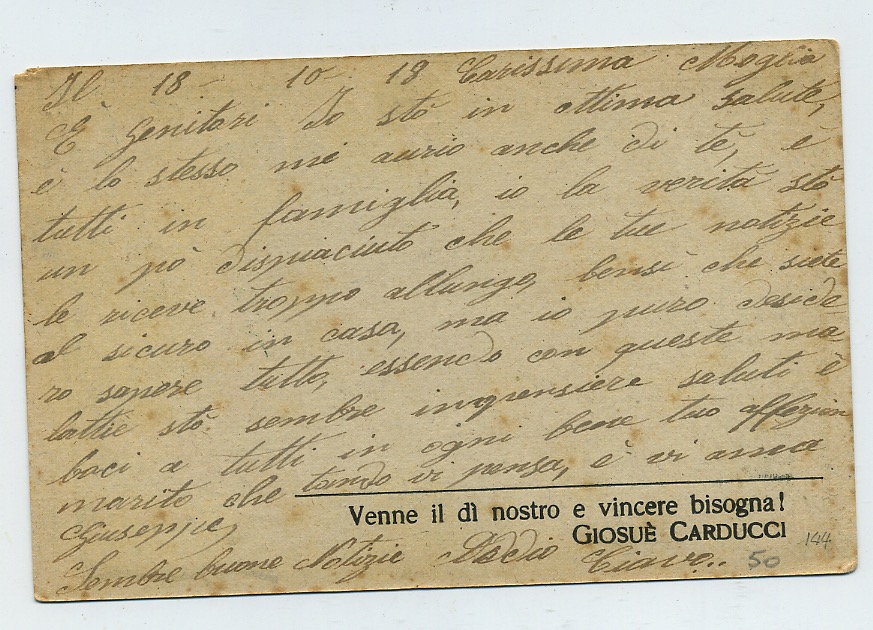 Il 18 - 10 - 18 Carissima Moglia
E genitori Io stò in ottima salute,
è lo stesso mi aurio anche di tè, è
tutti in famiglia, io la verità stò
un pò dispiaciuto che le tue notizie
le riceve troppo allungo, bensì che siete
al sicuro in casa, ma io puro deside
ro sapere tutto, essendo con queste ma
lattie stò sembre inpensiere saluti è
baci a tutti in ogni bene tuo affezion
marito che tando vi pensa, è vi ama
Giuseppe,
Venne il dì nostro e vincere bisogna!
GIOSUÈ CARDUCCI
Sembre buone Notizie Addio Ciavo..
50 144